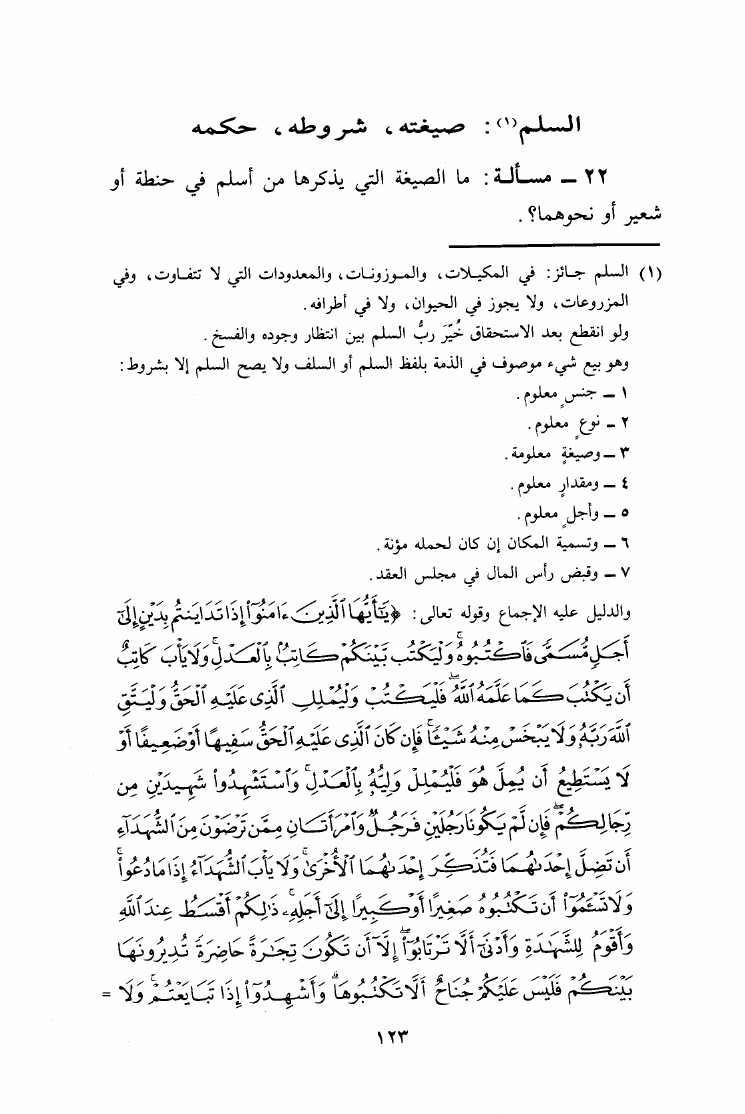 السلم(١): صيغته، شروطه، حكمه
٢٢ ــ مسألـة: ما الصيغة التي يذكرها من أسلم في حنطة أو
شعير أو نحوهما؟.
(١) السلم جـائز: في المكيـلات، والمـوزونـات، والمعدودات التي لا تتفـاوت، وفي
المزروعات، ولا يجوز في الحيوان، ولا في أطرافه.
ولو انقطع بعد الاستحقاق خُيّرَ ربُّ السلم بين انتظار وجوده والفسخ.
وهو بيع شيء موصوف في الذمة بلفظ السلم أو السلف ولا يصح السلم إلا بشروط:
١ ــ جنسٍ معلوم.
٢ ــ نوعٍ معلوم.
٣ ــ وصيغةٍ معلومة.
٤ ــ ومقدارٍ معلوم.
٥ ــ وأجلٍ معلوم.
٦ ــ وتسمية المكان إن كان لحمله مؤنة.
٧ ــ وقبض رأس المال في مجلس العقد.
والدليل عليه الإجماع وقوله تعالى: ﴿يَٰٓأَيُّهَا ٱلَّذِينَ ءَامَنُوٓا۟ إِذَا تَدَايَنتُم بِدَيْنٍ إِلَىٰٓ
أَجَلٍ مُّسَمًّى فَٱكْتُبُوهُ ۚ وَلْيَكْتُب بَّيْنَكُمْ كَاتِبٌۢ بِٱلْعَدْلِ ۚ وَلَا يَأْبَ كَاتِبٌ
أَن يَكْتُبَ كَمَا عَلَّمَهُ ٱللَّهُ ۚ فَلْيَكْتُبْ وَلْيُمْلِلِ ٱلَّذِى عَلَيْهِ ٱلْحَقُّ وَلْيَتَّقِ
ٱللَّهَ رَبَّهُۥ وَلَا يَبْخَسْ مِنْهُ شَيْـًٔا ۚ فَإِن كَانَ ٱلَّذِى عَلَيْهِ ٱلْحَقُّ سَفِيهًا أَوْ ضَعِيفًا أَوْ
لَا يَسْتَطِيعُ أَن يُمِلَّ هُوَ فَلْيُمْلِلْ وَلِيُّهُۥ بِٱلْعَدْلِ ۚ وَٱسْتَشْهِدُوا۟ شَهِيدَيْنِ مِن
رِّجَالِكُمْ ۖ فَإِن لَّمْ يَكُونَا رَجُلَيْنِ فَرَجُلٌ وَٱمْرَأَتَانِ مِمَّن تَرْضَوْنَ مِنَ ٱلشُّهَدَآءِ
أَن تَضِلَّ إِحْدَىٰهُمَا فَتُذَكِّرَ إِحْدَىٰهُمَا ٱلْأُخْرَىٰ ۚ وَلَا يَأْبَ ٱلشُّهَدَآءُ إِذَا مَا دُعُوا۟ ۚ
وَلَا تَسْـَٔمُوٓا۟ أَن تَكْتُبُوهُ صَغِيرًا أَوْ كَبِيرًا إِلَىٰٓ أَجَلِهِۦ ۚ ذَٰلِكُمْ أَقْسَطُ عِندَ ٱللَّهِ
وَأَقْوَمُ لِلشَّهَٰدَةِ وَأَدْنَىٰٓ أَلَّا تَرْتَابُوٓا۟ ۖ إِلَّآ أَن تَكُونَ تِجَٰرَةً حَاضِرَةً تُدِيرُونَهَا
بَيْنَكُمْ فَلَيْسَ عَلَيْكُمْ جُنَاحٌ أَلَّا تَكْتُبُوهَا ۗ وَأَشْهِدُوٓا۟ إِذَا تَبَايَعْتُمْ ۚ وَلَا =
١٢٣